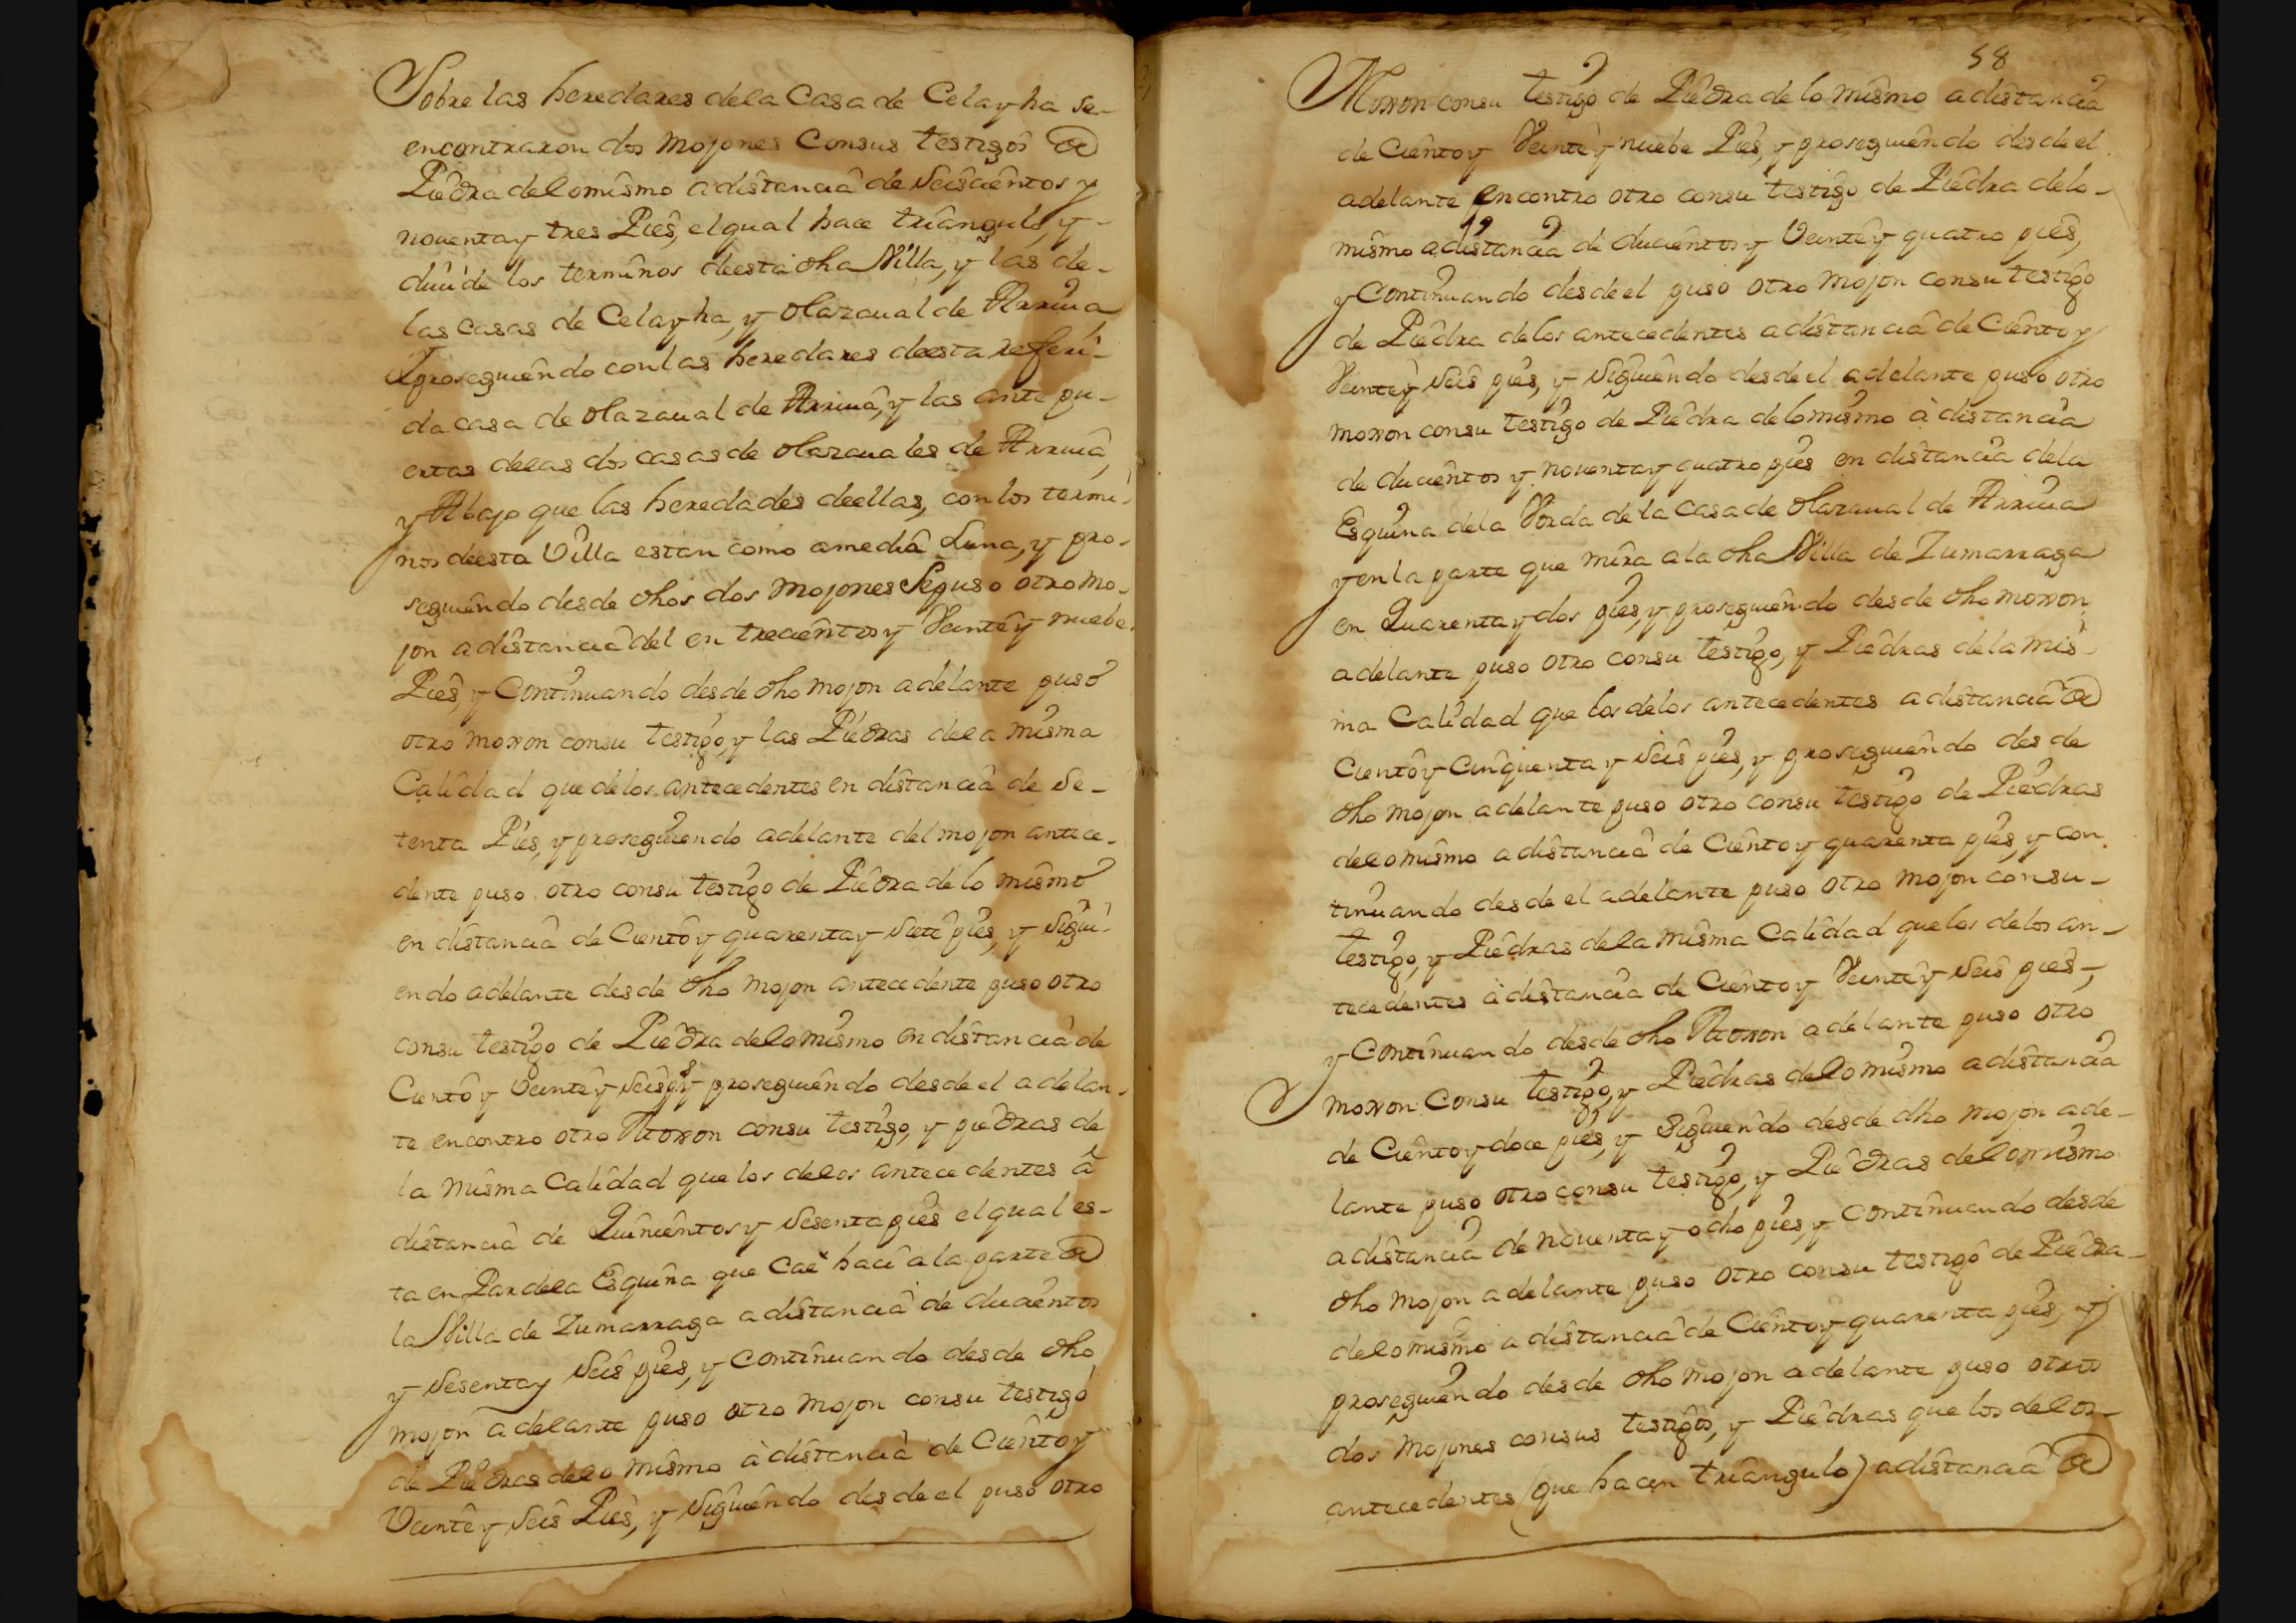 Sobre las heredares dela Casa de Celayha se-
encontraron dos mojones Consus testigos de
Piedra delomismo adistancia de seiscientos y
noventay tres Pies, elqual hace triangulo, y-
diuide los terminos deesta dha Villa, y las de-
las casas de Celayha, y olazaual de Arriua
Yprosegiendo conlas heredares deesta referi-
da casa de olazaual de Arriua, y las ante pu-
ertas delas dos casas de olazauales de Arriua,
y Abajo que las heredades deellas, con los termi-
nos deesta Villa estan como amedia Luna, y pro-
seguiendo desde dhos dos mojones Sepuso otro mo-
jon adistancia del en trecientos y Veintey nuebe
Pies, y Continuando desde dho mojon adelante puso
otro moxon consu testigo, y las Piedras dela misma
Calidad que delos antecedentes en distancia de se-
tenta Pies, y proseguiendo adelante del mojon antece-
dente puso otro consu testigo de Piedra de lo mismo
en distancia de Cientoy quarentay siete pies, y sigui-
endo adelante desde dho mojon antecedente puso otro
consu testigo de Piedra delomismo en distancia de
Cientoy Veintey seis ps y proseguiendo desde el adelan-
te encontro otro Moxon consu testigo, y piedras de
la misma Calidad que los delos antecedentes â
distancia de Quinientos y sesenta pies el qual es-
ta en Par dela Esquina que Cae hacia la parte de
la Villa de Zumarraga adistancia de ducientos
y sesentay seis pies, y Continuando desde dho
mojon adelante puso otro mojon consu testigo
de Piedras delo mismo à distancia de Cientoy
Veintey seis Pies, y siguiendo desde el puso otro
58
Moxon consu testigo de Piedra de lo mismo adistancia
de Cientoy Veintey nuebe Pies, y proseguiendo desde el
adelante encontro otro consu testigo de Piedra delo-
mismo adistancia de ducientos y Veintey quatro pies,
y Continuando desde el puso otro mojon consu testigo
de Piedra delos antecedentes adistancia de Cientoy
Veintey seis pies, y siguiendo desde el adelante puso otro
moxon consu testigo de Piedra delomismo à distancia
de ducientos y noventay quatro pies en distancia dela
Esquina dela Borda de la casa de olazaual de Arriua
y en la parte que mira ala dha Villa de Zumarraga
en Quarentay dos pies, y proseguiendo desde dho moxon
adelante puso otro consu testigo, y Piedras de la mis-
ma Calidad que los delos antecedentes adistancia de
Cientoy Cinquenta y seis pies, y proseguiendo desde
dho mojon adelante puso otro consu testigo de Piedras
delomismo adistancia de Cientoy quarenta pies, y con-
tinuando desde el adelante puso otro mojon consu-
testigo, y Piedras dela misma Calidad que los delos an-
tecedentes à distancia de Cientoy Veintey seis pies-,
y Continuando desde dho Moxon adelante puso otro
moxon Consu testigo, y Piedras delo mismo adistancia
de Cientoy doce pies, y siguiendo desde dho mojon ade-
lante puso otro consu testigo, y Piedras delomismo
adistancia de noventay ocho pies, y Continuando desde
dho mojon adelante puso otro consu testigo de Piedra-
delomismo a distancia de Cientoy quarenta pies, y
proseguiendo desde dho mojon adelante puso otros
dos mojones consus testigos, y Piedras que los delos-
antecedentes (que hacen triangulo) adistancia de